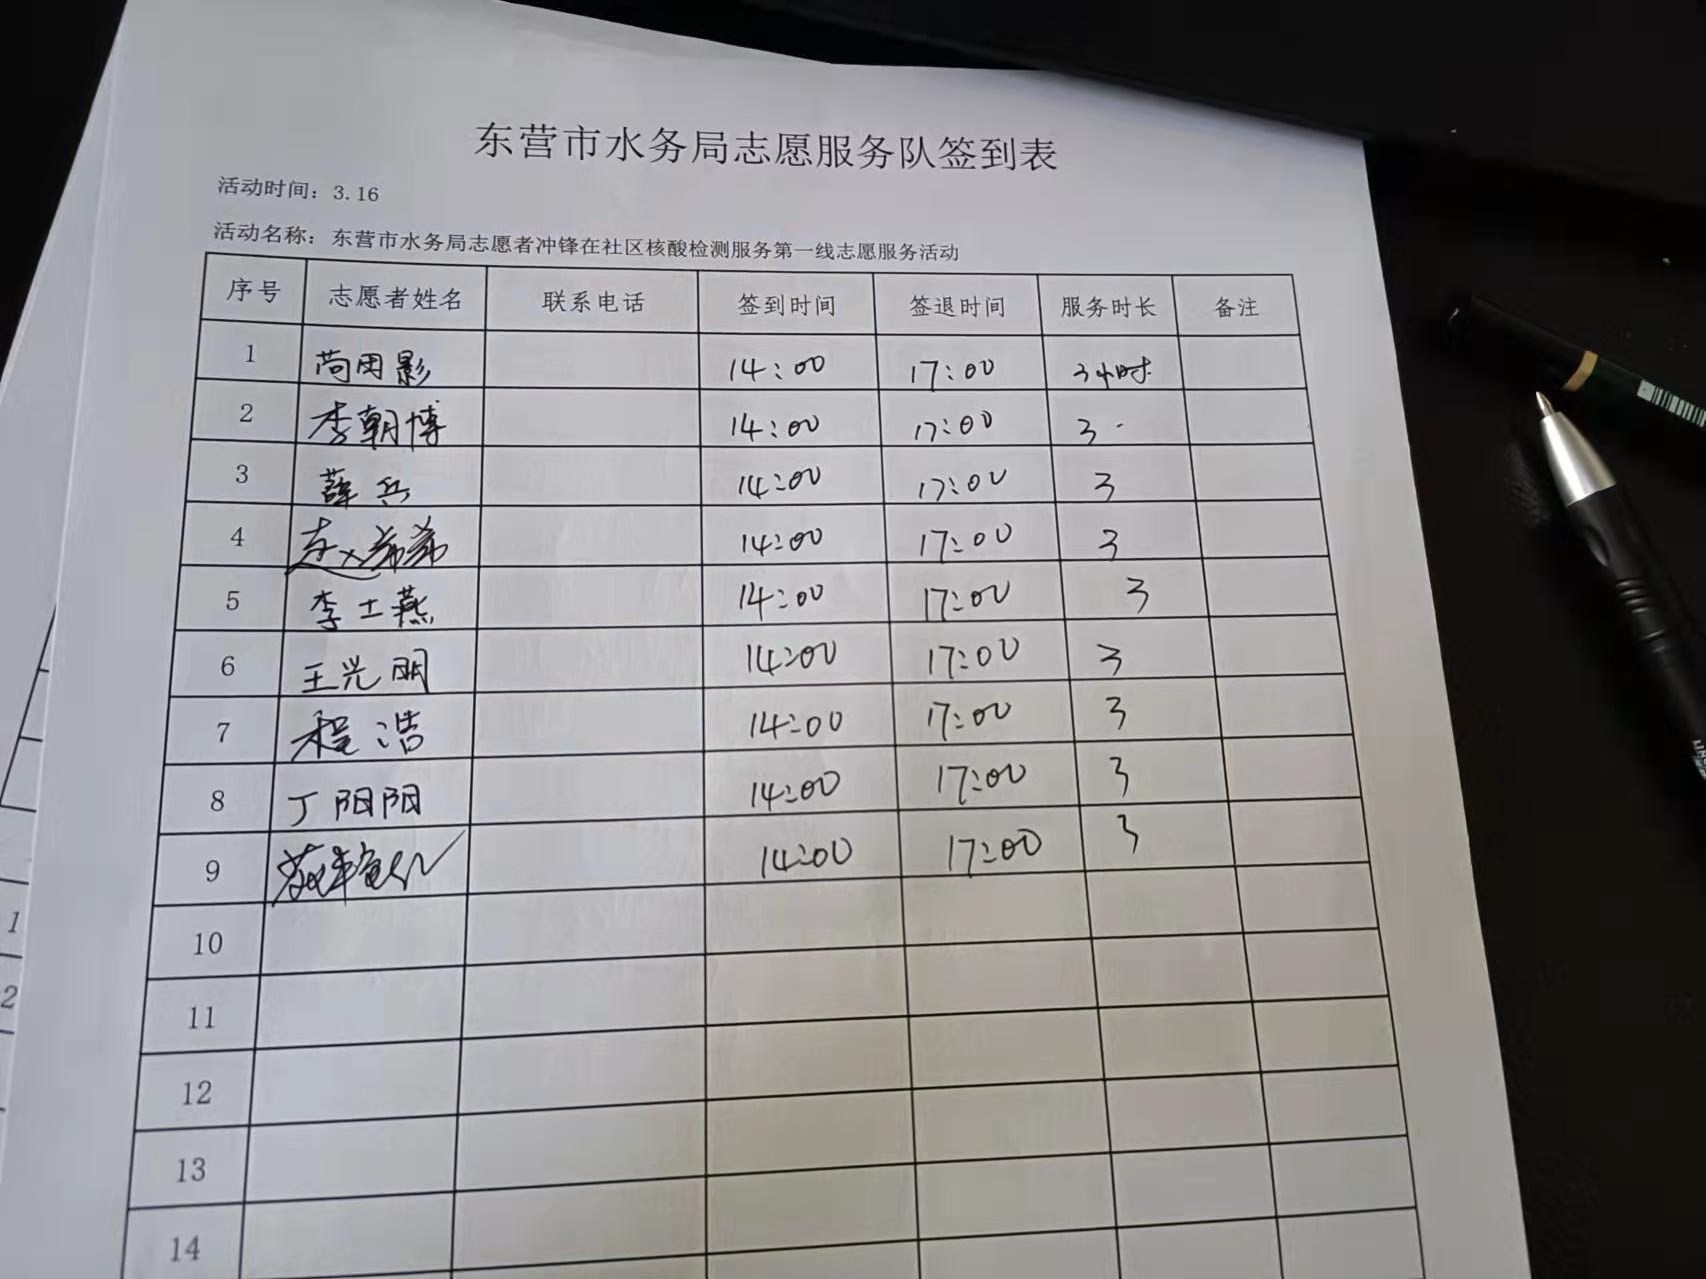 东营市水务局志愿服务队签到表
活动时间：3.16
活动名称：东营市水务局志愿者冲锋在社区核酸检测服务第一线志愿服务活动
序号 志愿者姓名 联系电话 签到时间 签退时间 服务时长 备注
1 14:00 17:00 3小时
2 李朝博 14:00 17:00 3
3 薛兵 14:00 17:00 3
4 赵弟弟 14:00 17:00 3
5 李士燕 14:00 17:00 3
6 王兴明 14:00 17:00 3
7 程浩 14:00 17:00 3
8 丁阳阳 14:00 17:00 3
9 14:00 17:00 3
10
11
12
13
14
1
2